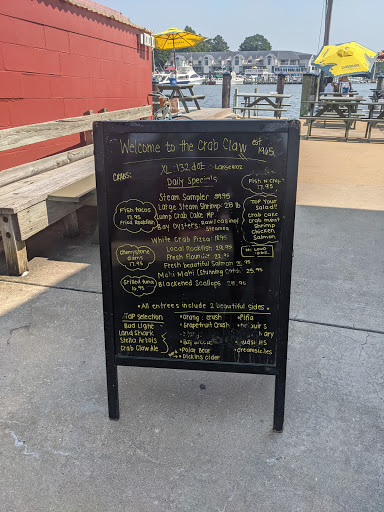 Welcome to the Crab Claw est
1965
Crabs: XL 132 doz Large 102
Daily Specials
Steam Sampler 39.95
Large Steam Shrimp 28 lb
Jump Crab Cake MP
Bay Oysters Raw (casino)
Steamed
Fish tacos
17.95
Fried Rockfish
Fish N Chip
17.95
Top Your
Salad!
Crab Cake
Crab meat
Shrimp
Chicken
Salmon
White Crab Pizza 18.95
Local Rockfish
Fresh Flounder
Fresh beautiful Salmon
Mahi Mahi (Stunning Catch) 25.95
Blackened Scallops
Cherrystone
clams
17.95
Grilled tuna
16.95
• All entrees include 2 beautiful sides •
Tap Selection
Bud Light
Land Shark
Stella Artois
Crab Claw Ale
• Orang. Crush
• Grapefruit Crush
• Polar Bear
• Dickins cider
• Piña
• Creamsicles